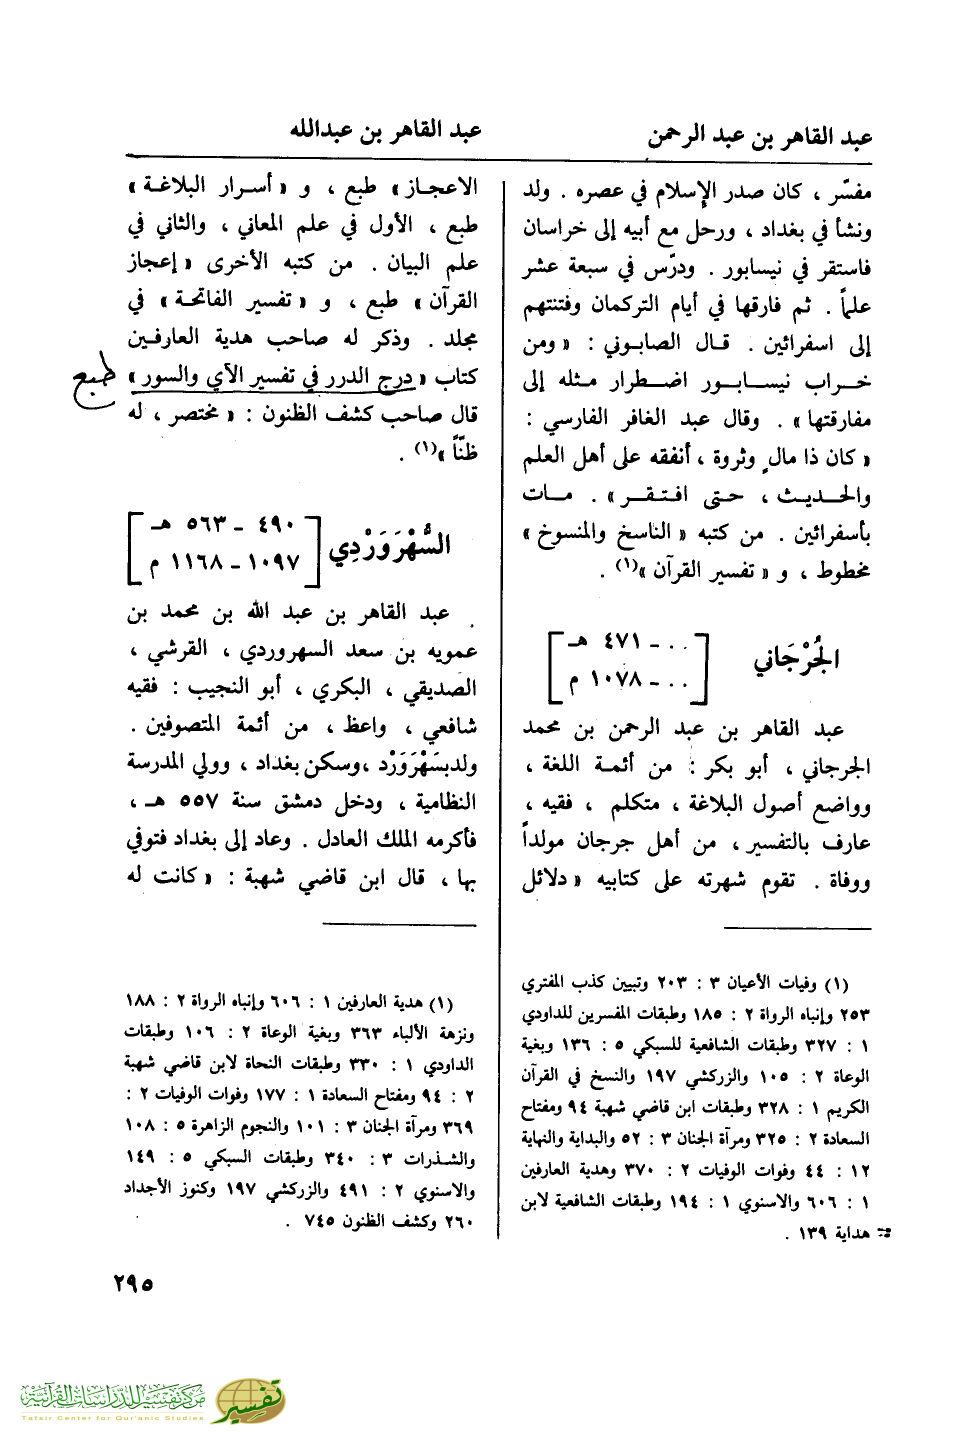 عبد القاهر بن عبد الرحمن
عبد القاهر بن عبدالله
مفسّر ، كان صدر الإسلام في عصره . ولد
ونشأ في بغداد ، ورحل مع أبيه إلى خراسان
فاستقر في نيسابور . ودرّس في سبعة عشر
علماً . ثم فارقها في أيام التركمان وفتنتهم
إلى اسفرائين . قال الصابوني : « ومن
خراب نيسابور اضطرار مثله إلى
مفارقتها » . وقال عبد الغافر الفارسي :
« كان ذا مالٍ وثروة ، أنفقه على أهل العلم
والحديث ، حتى افتقر » . مات
بأسفرائين . من كتبه « الناسخ والمنسوخ »
مخطوط ، و « تفسير القرآن »(١) .
الجُرْجَاني
[ . . . ـ ٤٧١ هـ
. . . ـ ١٠٧٨ م ]
عبد القاهر بن عبد الرحمن بن محمد
الجرجاني ، أبو بكر : من أئمة اللغة ،
وواضع أصول البلاغة ، متكلم ، فقيه ،
عارف بالتفسير ، من أهل جرجان مولداً
ووفاة . تقوم شهرته على كتابيه « دلائل
(١) وفيات الأعيان ٣ : ٢٠٣ وتبيين كذب المفتري
٢٥٣ وإنباه الرواة ٢ : ١٨٥ وطبقات المفسرين للداودي
١ : ٣٢٧ وطبقات الشافعية للسبكي ٥ : ١٣٦ وبغية
الوعاة ٢ : ١٠٥ والزركشي ١٩٧ والنسخ في القرآن
الكريم ١ : ٣٢٨ وطبقات ابن قاضي شهبة ٩٤ ومفتاح
السعادة ٢ : ٣٢٥ ومرآة الجنان ٣ : ٥٢ والبداية والنهاية
١٢ : ٤٤ وفوات الوفيات ٢ : ٣٧٠ وهدية العارفين
١ : ٦٠٦ والاسنوي ١ : ١٩٤ وطبقات الشافعية لابن
هداية ١٣٩ .
الاعجاز » طبع ، و « أسرار البلاغة »
طبع ، الأول في علم المعاني ، والثاني في
علم البيان . من كتبه الأخرى « إعجاز
القرآن » طبع ، و « تفسير الفاتحة » في
مجلد . وذكر له صاحب هدية العارفين
كتاب « درج الدرر في تفسير الآي والسور » طبع
قال صاحب كشف الظنون : « مختصر ، له
ظنّاً »(١) .
السُّهْرَوَرْدِي
[ ٤٩٠ ـ ٥٦٣ هـ
١٠٩٧ ـ ١١٦٨ م ]
عبد القاهر بن عبد الله بن محمد بن
عمويه بن سعد السهروردي ، القرشي ،
الصديقي ، البكري ، أبو النجيب : فقيه
شافعي ، واعظ ، من أئمة المتصوفين .
ولدبسَهْرَوَرْد ،وسكن بغداد ، وولي المدرسة
النظامية ، ودخل دمشق سنة ٥٥٧ هـ ،
فأكرمه الملك العادل . وعاد إلى بغداد فتوفي
بها ، قال ابن قاضي شهبة : « كانت له
(١) هدية العارفين ١ : ٦٠٦ وإنباه الرواة ٢ : ١٨٨
ونزهة الألباء ٣٦٣ وبغية الوعاة ٢ : ١٠٦ وطبقات
الداودي ١ : ٣٣٠ وطبقات النحاة لابن قاضي شهبة
٢ : ٩٤ ومفتاح السعادة ١ : ١٧٧ وفوات الوفيات ٢ :
٣٦٩ ومرآة الجنان ٣ : ١٠١ والنجوم الزاهرة ٥ : ١٠٨
والشذرات ٣ : ٣٤٠ وطبقات السبكي ٥ : ١٤٩
والاسنوي ٢ : ٤٩١ والزركشي ١٩٧ وكنوز الأجداد
٢٦٠ وكشف الظنون ٧٤٥ .
٢٩٥
مركز تفسير للدراسات القرآنية
Tafsir Center for Qur'anic Studies
تفسير